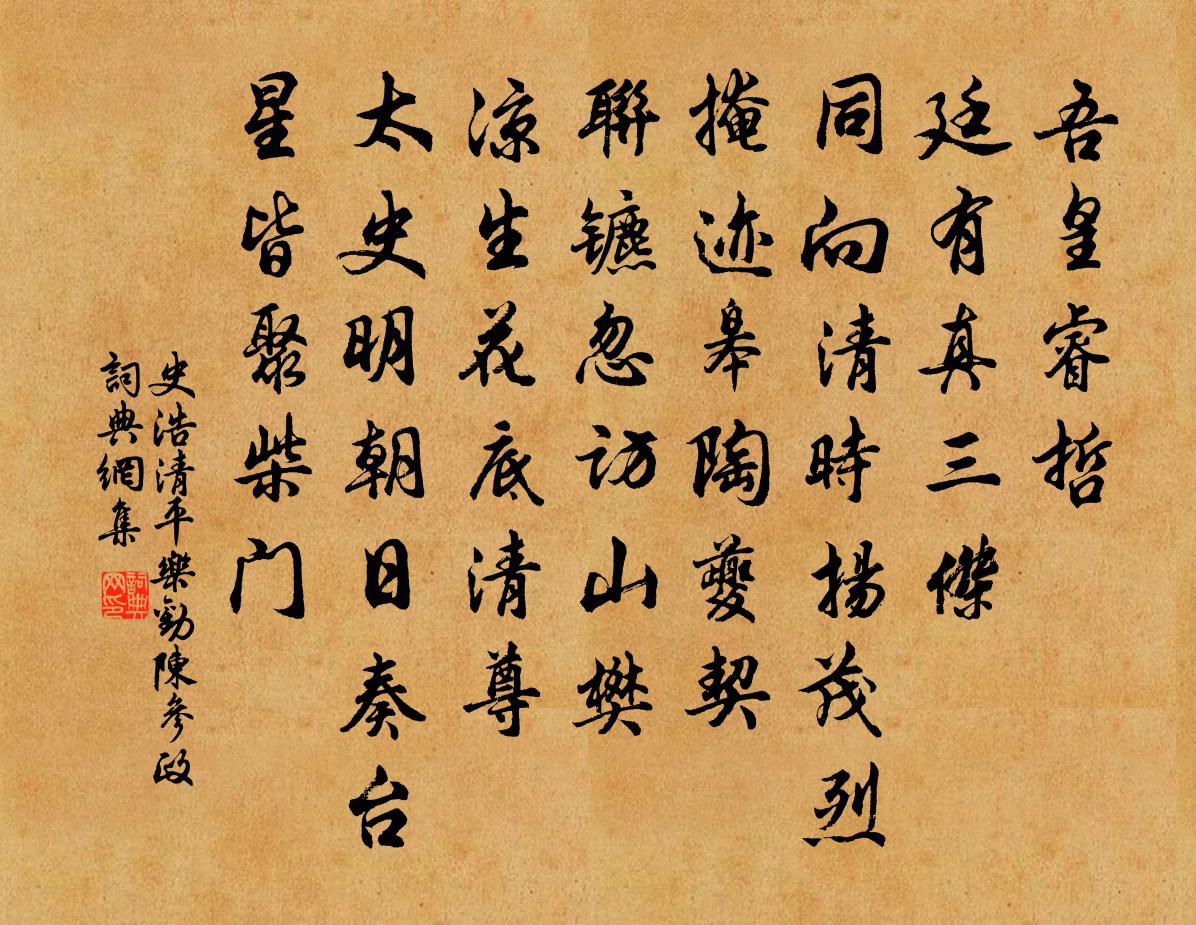 吾皇睿哲
廷有真三傑
同向清時揚茂烈
掩迹皋陶夔契
聯镳忽訪山樊
涼生花底清尊
太史明朝日奏台
星皆聚柴门
史浩清平樂勸陳參政
詞典網集
詞典网印